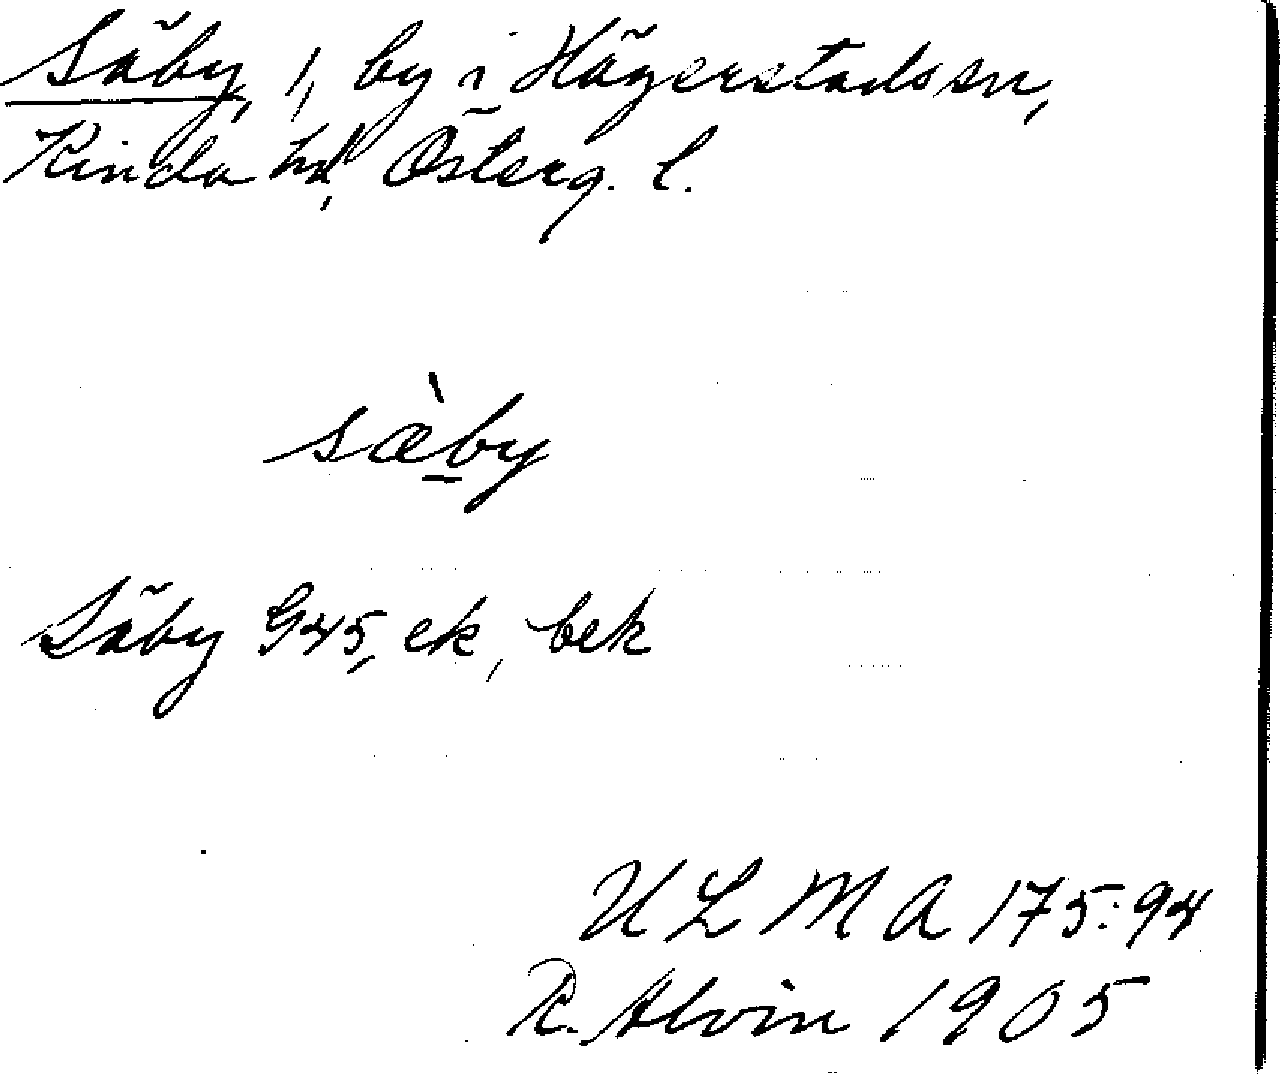 Säby, 1, by i Hägerstads sn,
Kinda hd, Österg. l.
sæ̀by
Säby G45, ek, bek
ULMA 175:94
R. Alvin 1905